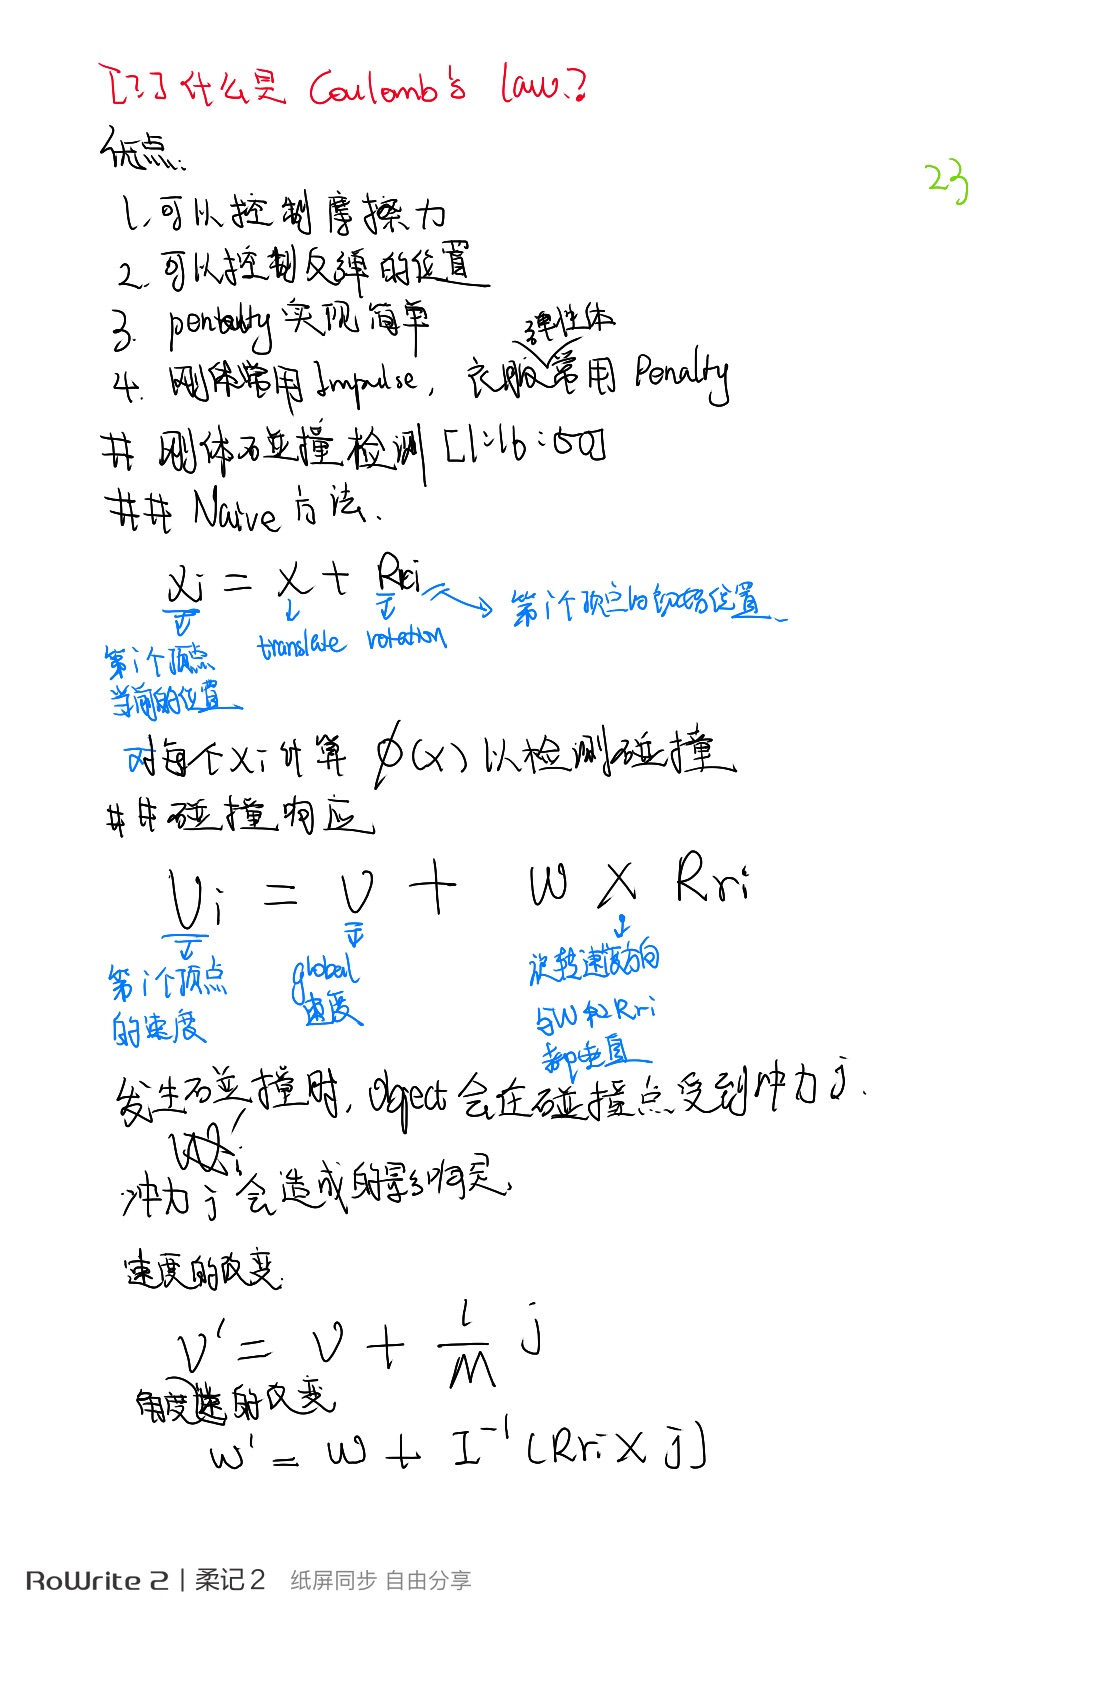 [?] 什么是 Coulomb's law?
优点:
23
1.可以控制摩擦力
2.可以控制反弹的位置
3. penalty 实现简单
弹性体
4. 刚体常用 Impulse, 衣服常用 Penalty
# 刚体碰撞检测 [1:16:50]
## Naive 方法.
xi = x + Rri
第i个顶点的初始位置
translate rotation
第i个顶点
当前的位置
对每个xi计算 φ(x) 以检测碰撞
##碰撞响应
Vi = V + W × Rri
第i个顶点
的速度
global
速度
旋转速度方向
与W和Rri
都垂直
发生碰撞时, object会在碰撞点受到冲力 j.
冲力 j 会造成的影响是,
速度的改变.
V' = V + 1/M j
角速度的改变
W' = W + I⁻¹ (Rri × j)
RoWrite 2 | 柔记 2 纸屏同步 自由分享